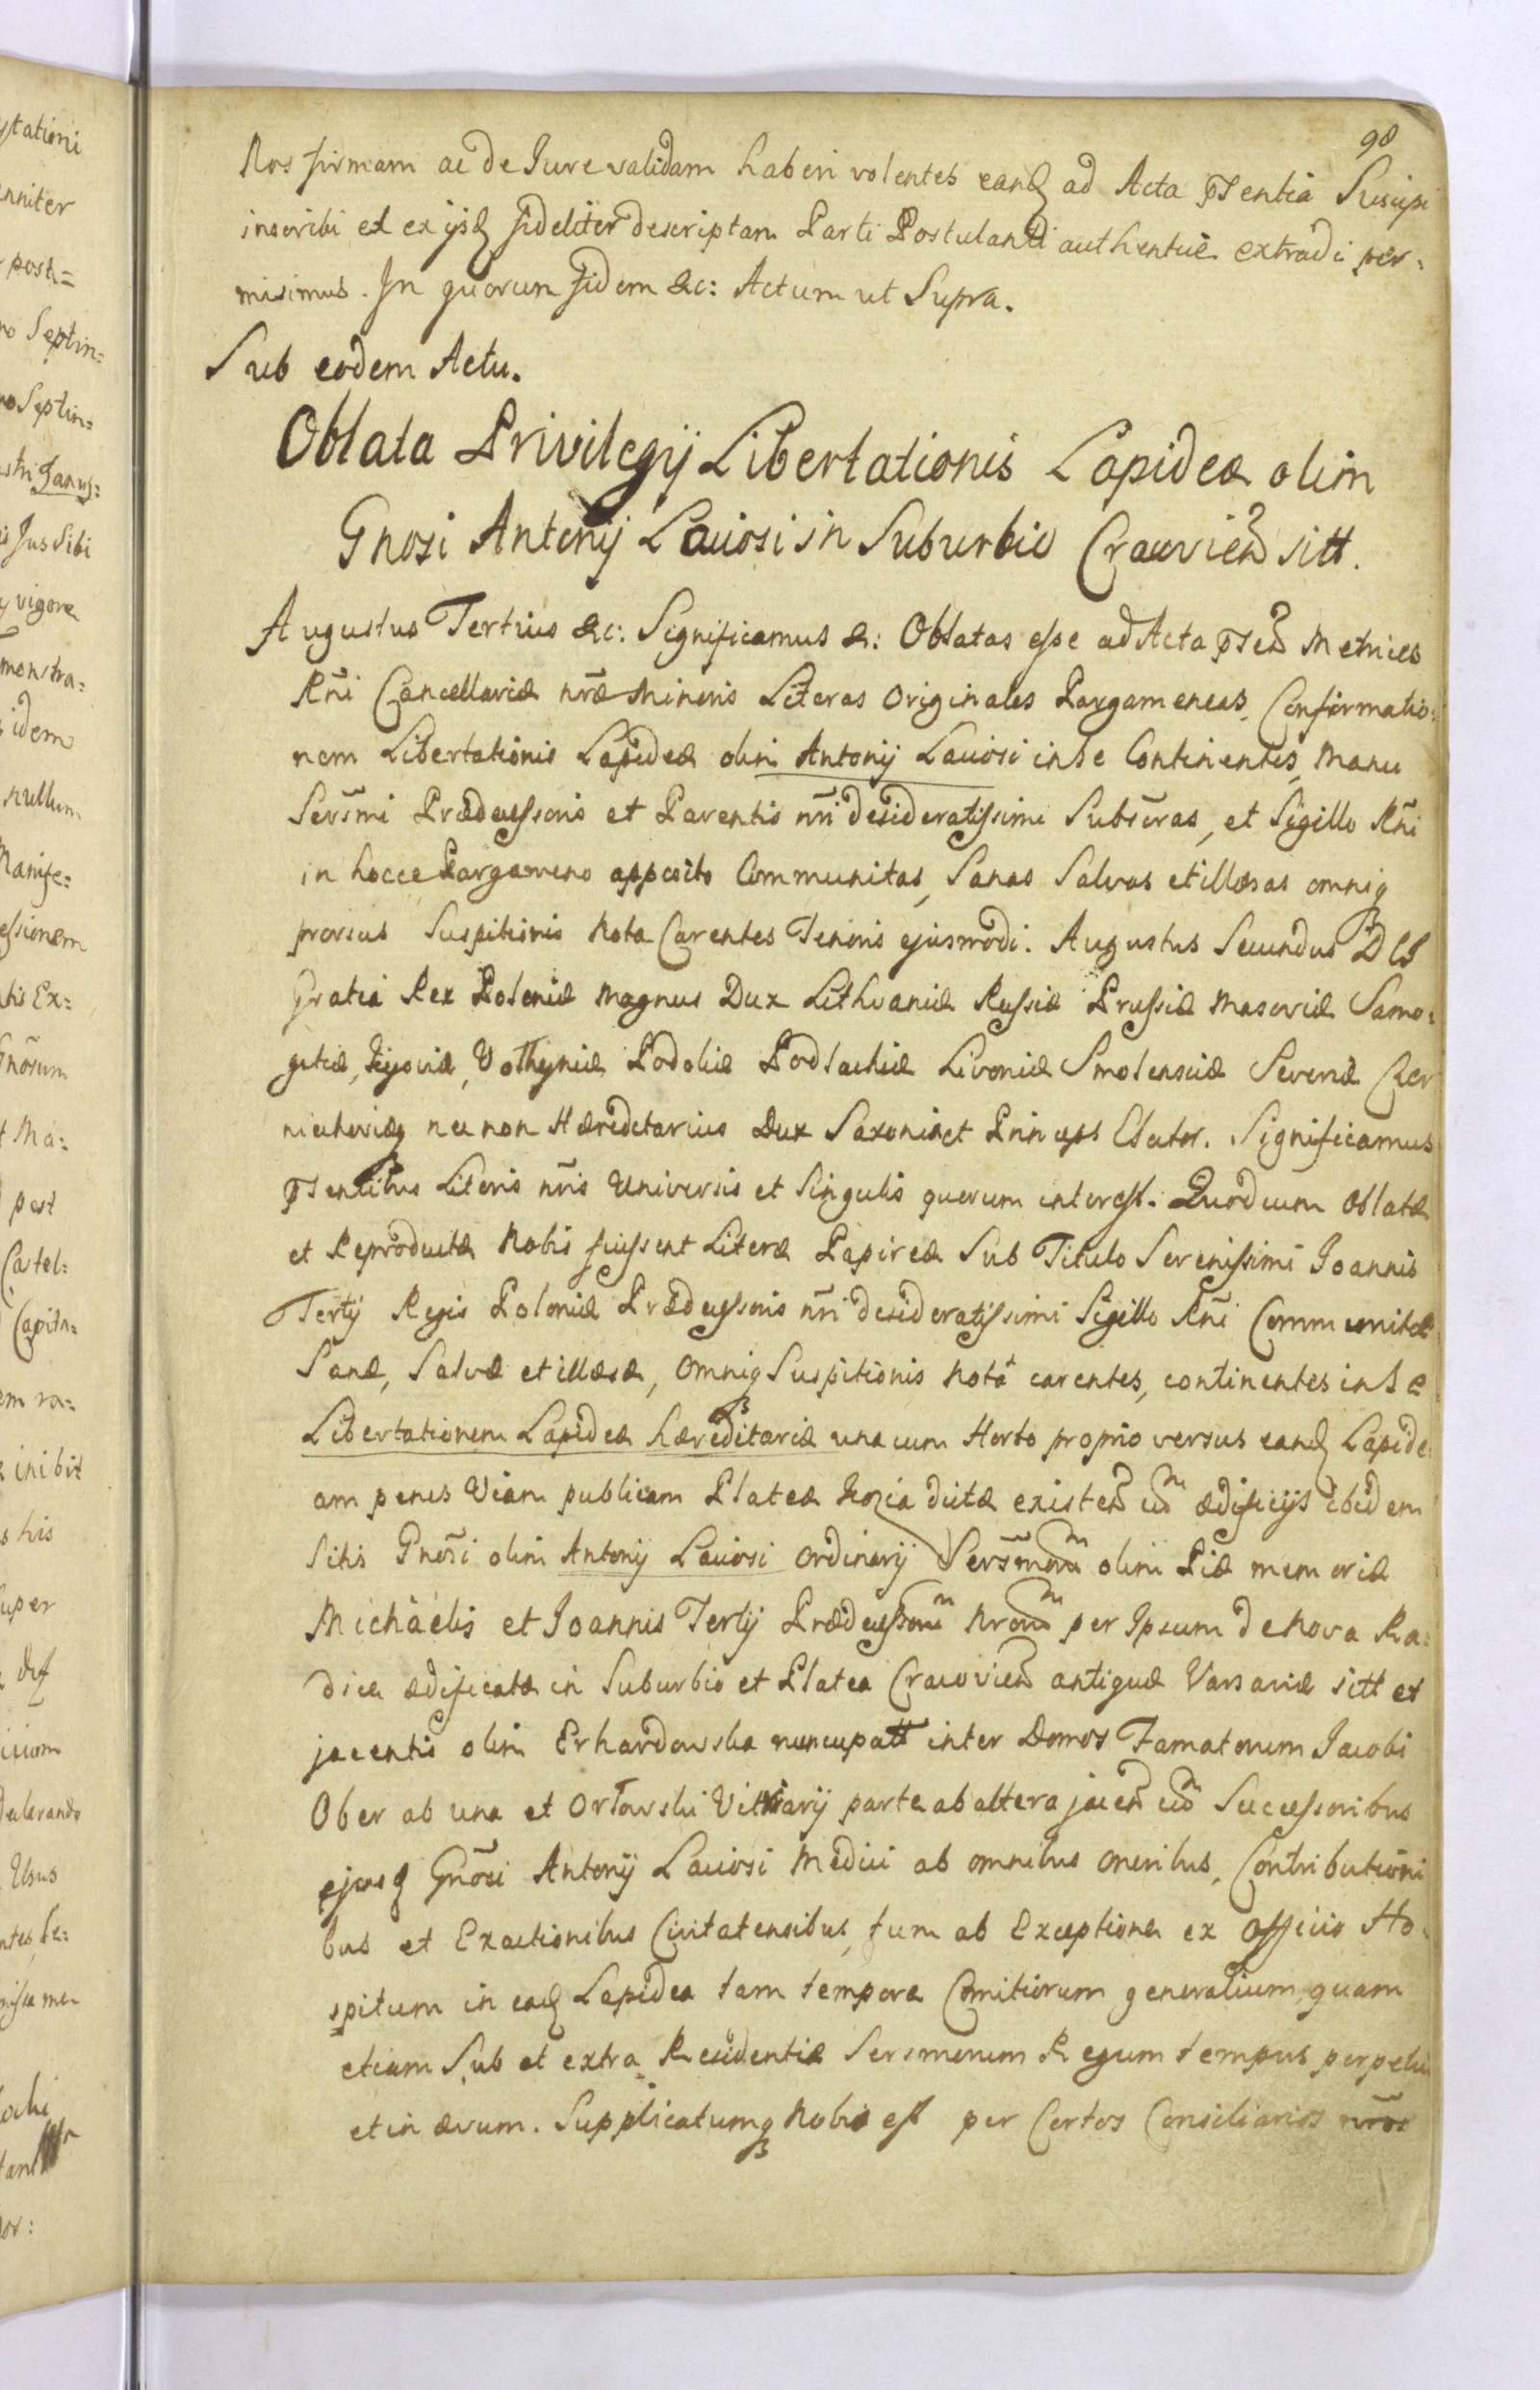 98
Nos firmam ac de Iure validam haberi volentes eandq ad Acta pntia Suscipi
inscribi et ex ijsdq fideliter descriptam Parti Postulanti authentice extradi per=
misimus. In quorum fidem &c: Actum ut Supra.
Sub eodem Actu.
Oblata Privilegij Libertationis Lapideæ olim
Gnosi Antonij Lauiosi in Suburbio Cracvien sitt.
Augustus Tertius &c: Significamus &: Oblatas esse ad Acta pnten Metrices
Rñi Cancellariæ nræ Minoris Literas Originales Pargameneas, Confirmatio=
nem Libertationis Lapideæ olim Antonij Lauiosi in se Continentes, Manu
Sersmi Prædecessoris et Parentis nri desideratissimi Subscras, et Sigillo Rñi
in hocce Pargameno apposito Communitas, Sanas Salvas et illæsas omniq
prorsus Suspitionis Nota Carentes Tenoris ejusmodi. Augustus Secundus DEI
Gratia Rex Poloniæ Magnus Dux Lithvaniæ Russiæ Prussiæ Masoviæ Samo=
gitiæ, Kijoviæ, Volhyniæ Podoliæ Podlachiæ Livoniæ Smolensciæ Severiæ Czer
niechoviæq nec non Hæreditarius Dux Saxoniæ et Princeps Elector. Significamus
pntentibus Literis nris Universis et Singulis quorum interest. Quod cum Oblatæ
et Reproductæ Nobis fuissent Literæ Papireæ Sub Titulo Serenissimi Ioannis
Tertij Regis Poloniæ Prædecessoris nri desideratissimi Sigillo Rñi Communitæ
Sanæ, Salvæ et illæsæ, omniq Suspitionis notâ carentes, continentes in Se
Libertationem Lapideæ hæreditariæ una cum Horto proprio versus eandq Lapide
am penes Viam publicam Plateæ Kozia dictæ existen cum ædificijs ibidem
Sitis Gnosi olim Antonij Lauiosi Ordinarij Sersmorum olim Piæ memoriæ
Michaëlis et Ioannis Tertij Prædecessorum Nrorum per Ipsum de nova Ra=
dice ædificatæ in Suburbio et Platea Cracovien antiquæ Varsaviæ sitt et
jacentis olim Erhardowska nuncupatt inter Domos Famatorum Iacobi
Ober ab una et Orłowski Vitriarij parte ab altera jacen cum Successoribus
ejusq Gnosi Antonij Lauiosi Medici ab omnibus oneribus, Contributioni
bus et Exactionibus Civitatensibus, tum ab Exceptione ex Officio Ho=
spitum in eadq Lapidea tam tempore Comitiorum generalium quam
etiam Sub et extra Residentiæ Sersmorum Regum tempus perpetuo
et in ævum. Supplicatumq Nobis est per Certos Consiliarios nros